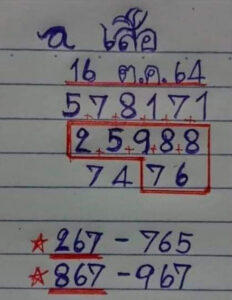 a เสือ
16 ต.ค. 64
5+7+8+1+7+1
2+5+9+8+8
7 4 7 6
☆ 267 - 765
☆ 867 - 967